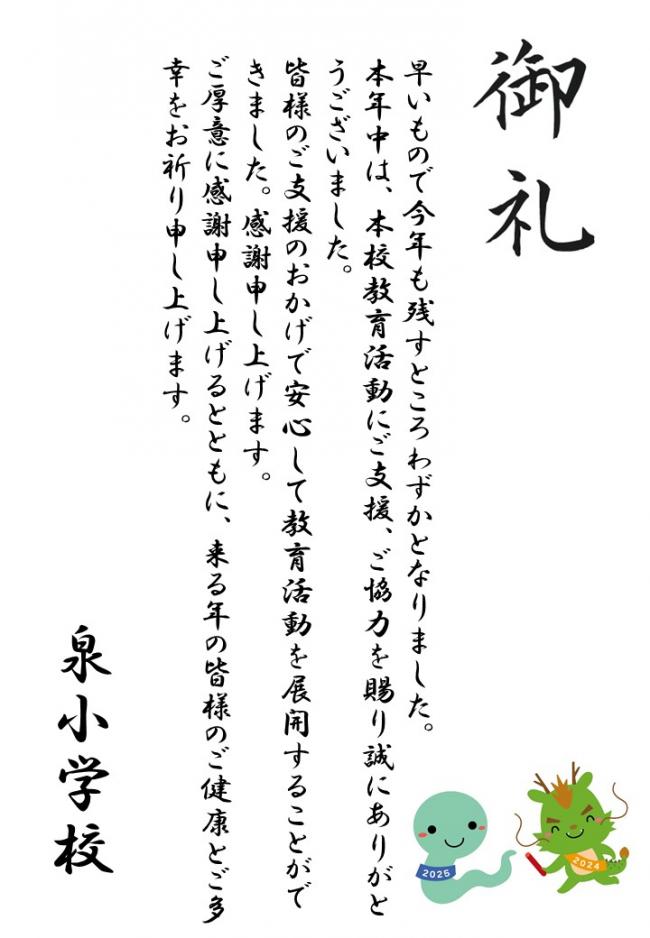 御礼
早いもので今年も残すところわずかとなりました。
本年中は、本校教育活動にご支援、ご協力を賜り誠にありがと
うございました。
皆様のご支援のおかげで安心して教育活動を展開することがで
きました。感謝申し上げます。
ご厚意に感謝申し上げるとともに、来る年の皆様のご健康とご多
幸をお祈り申し上げます。
泉小学校
2025
2024